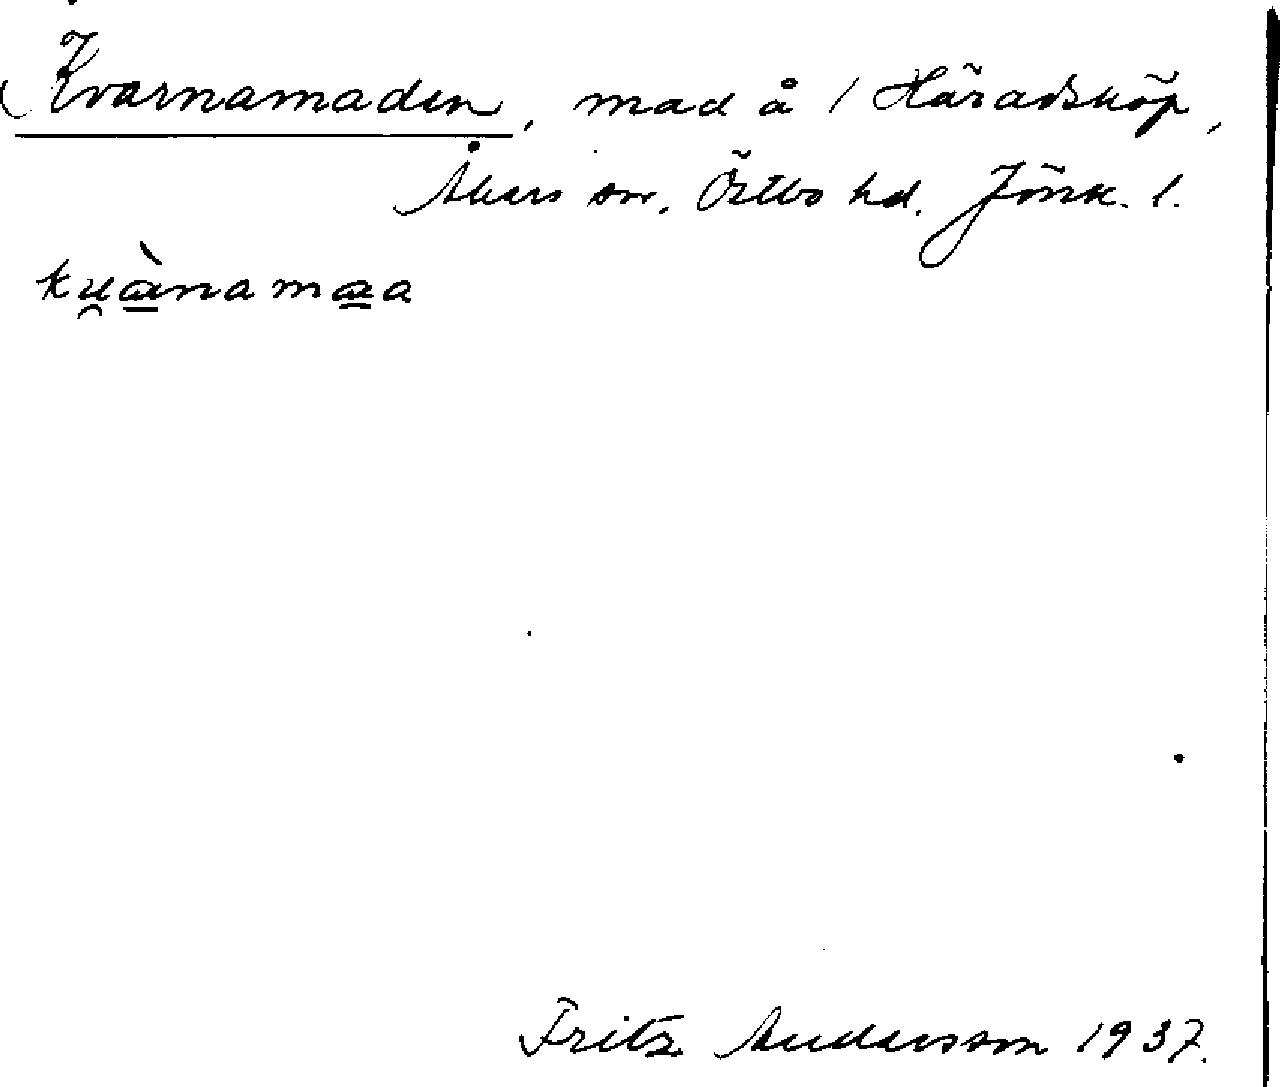 Kvarnamaden, mad å / Häradsköp,
Åkers sn. Östbo hd. Jönk. l.
ku̯à̠nama̠a
Fritz Andersson 1937.